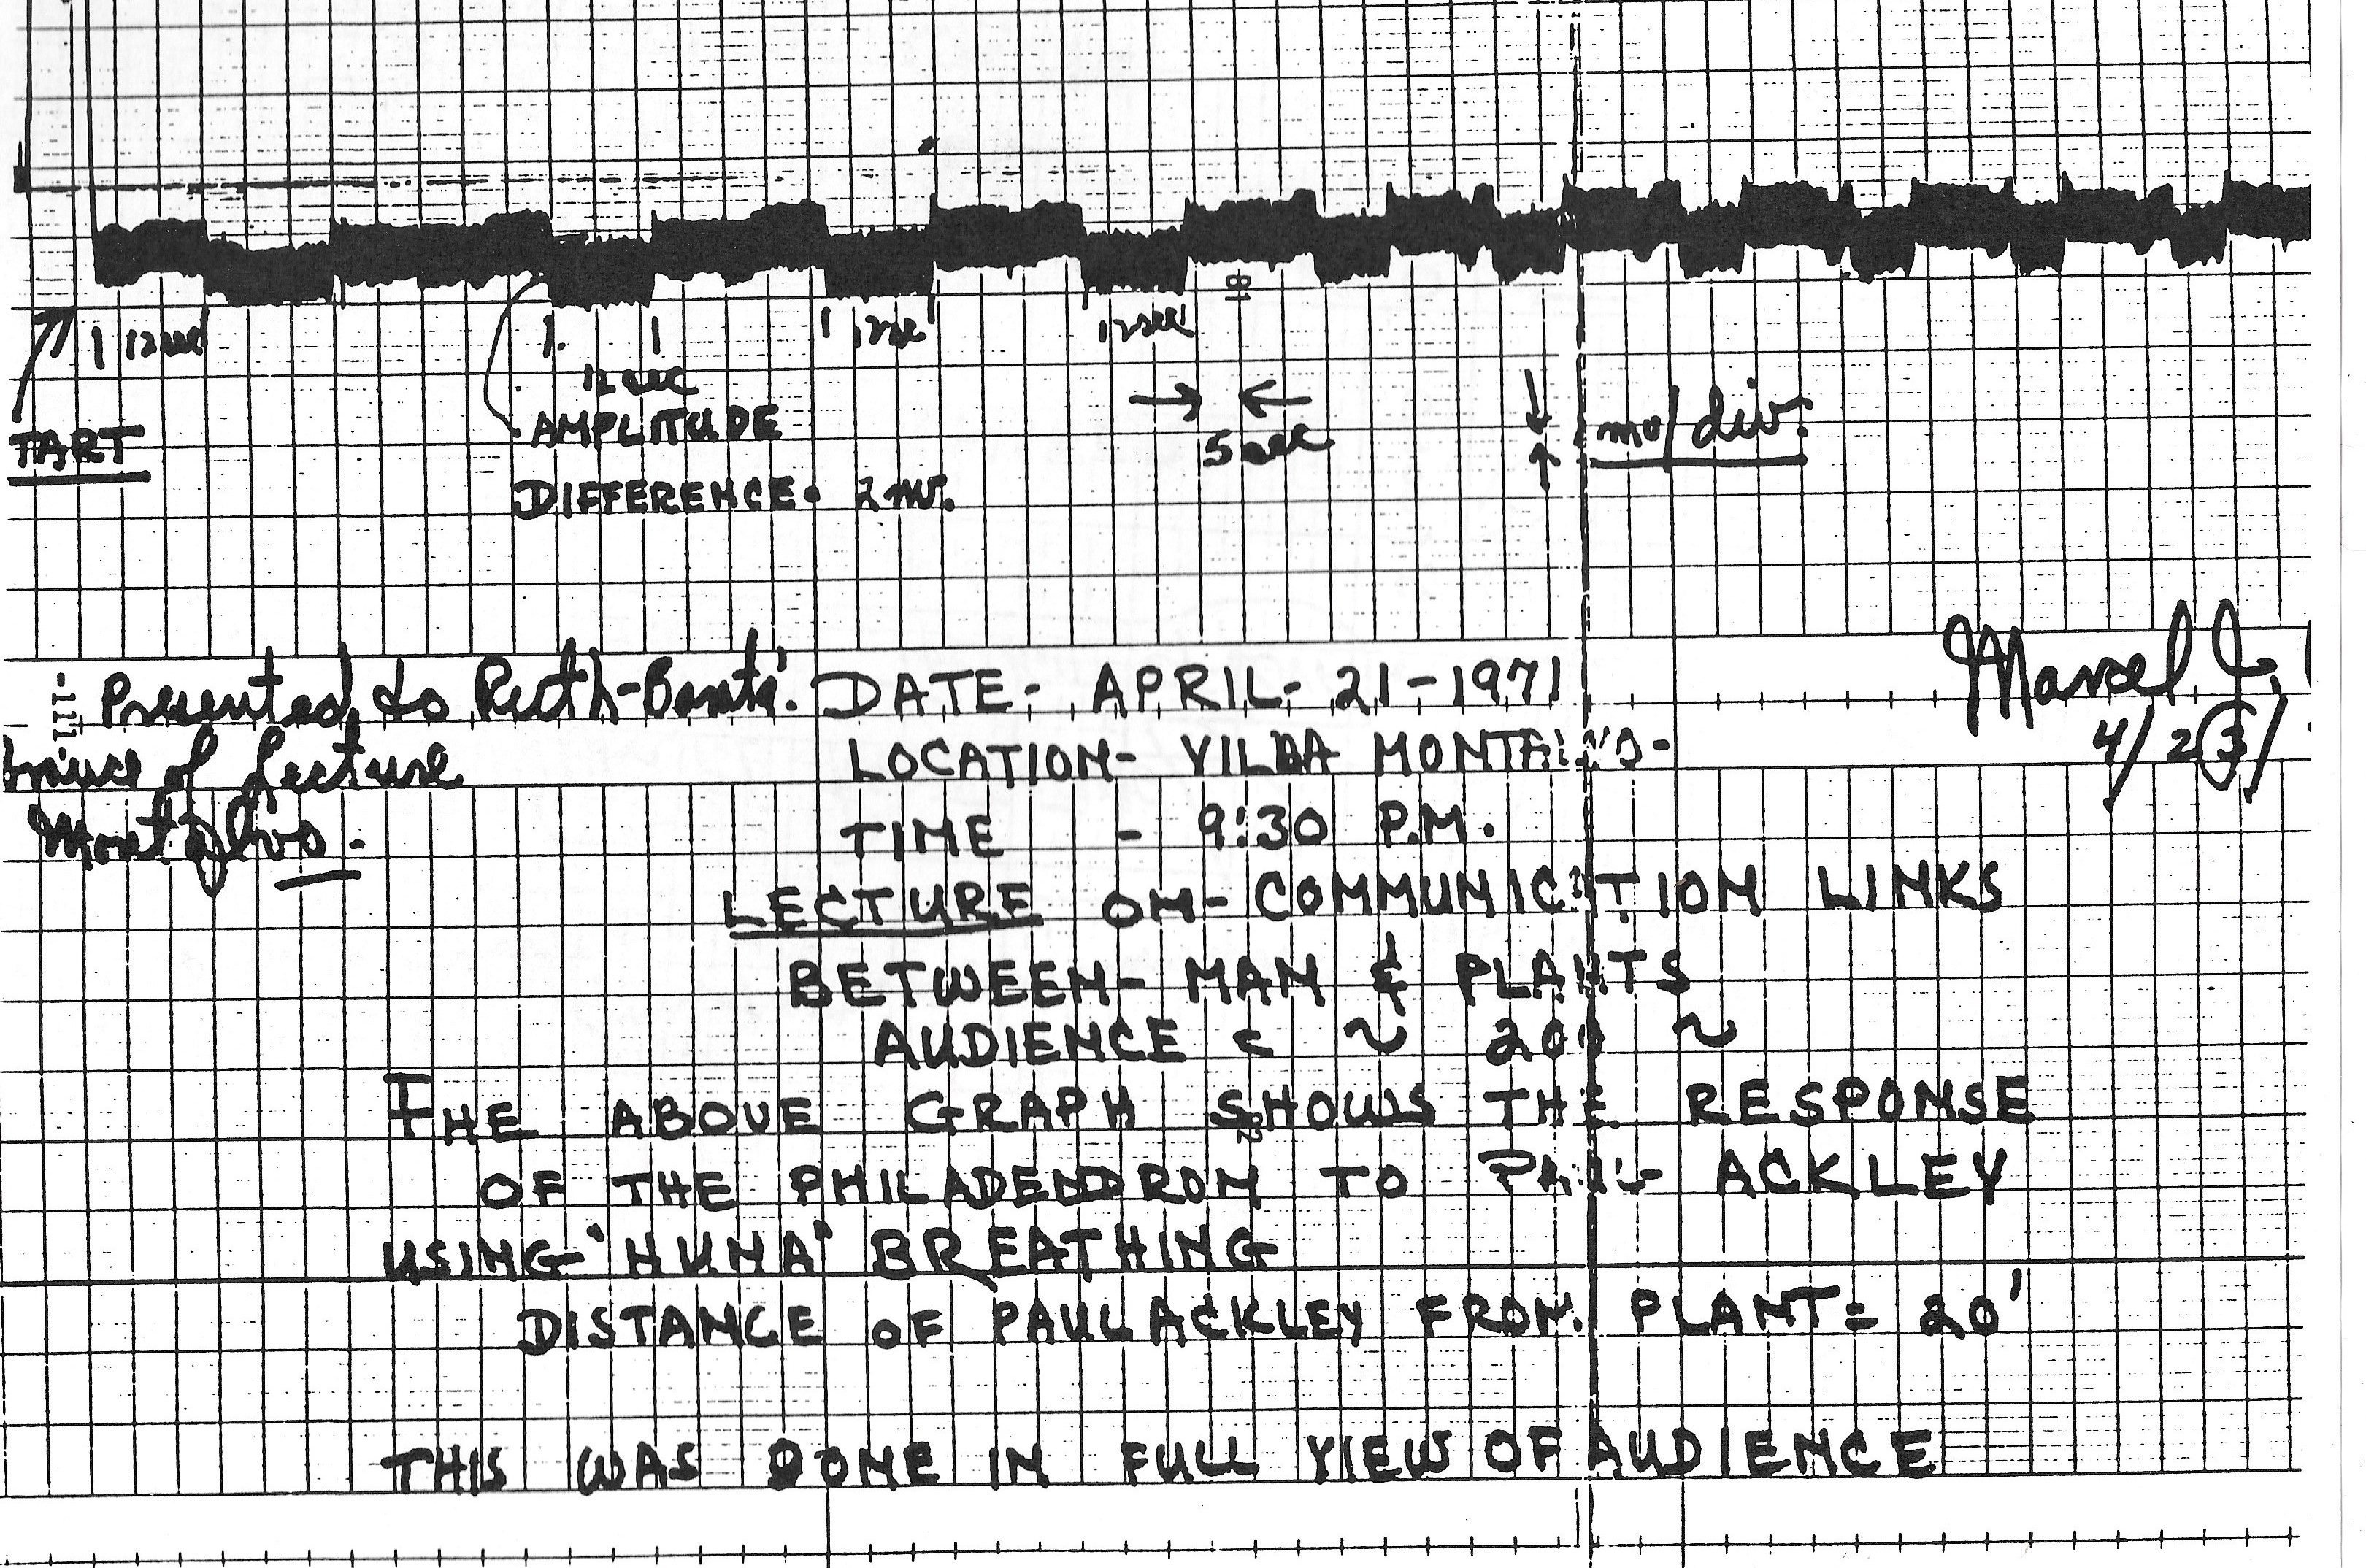 1 12 sec
1. 1
12 sec
1 12 sec
12 sec
18
TART
AMPLITUDE
DIFFERENCE. 2 mv.
→ ←
5 sec
mv/div.
Presented to Ruth-
of Lecture
Montalvo -
-111-
DATE- APRIL- 21-1971
LOCATION- VILLA MONTALVO-
TIME - 9:30 P.M.
Marcel J.
4/23/
LECTURE ON- COMMUNICATION LINKS
BETWEEN- MAN & PLANTS
AUDIENCE ~ 200 ~
THE ABOVE GRAPH SHOWS THE RESPONSE
OF THE PHILADENDRON TO PAUL- ACKLEY
USING-'HUNA' BREATHING
DISTANCE OF PAUL ACKLEY FROM PLANT= 20'
THIS WAS DONE IN FULL VIEW OF AUDIENCE